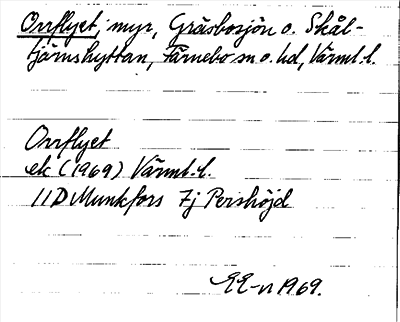 Orrflyet, myr, Gräsbosjön o. Skål-
tjärnshyttan, Färnebo sn o. hd, Värml. l.
Orrflyet
ek (1969) Värml. l.
11D Munkfors 7j Pershöjd
EE-n 1969.